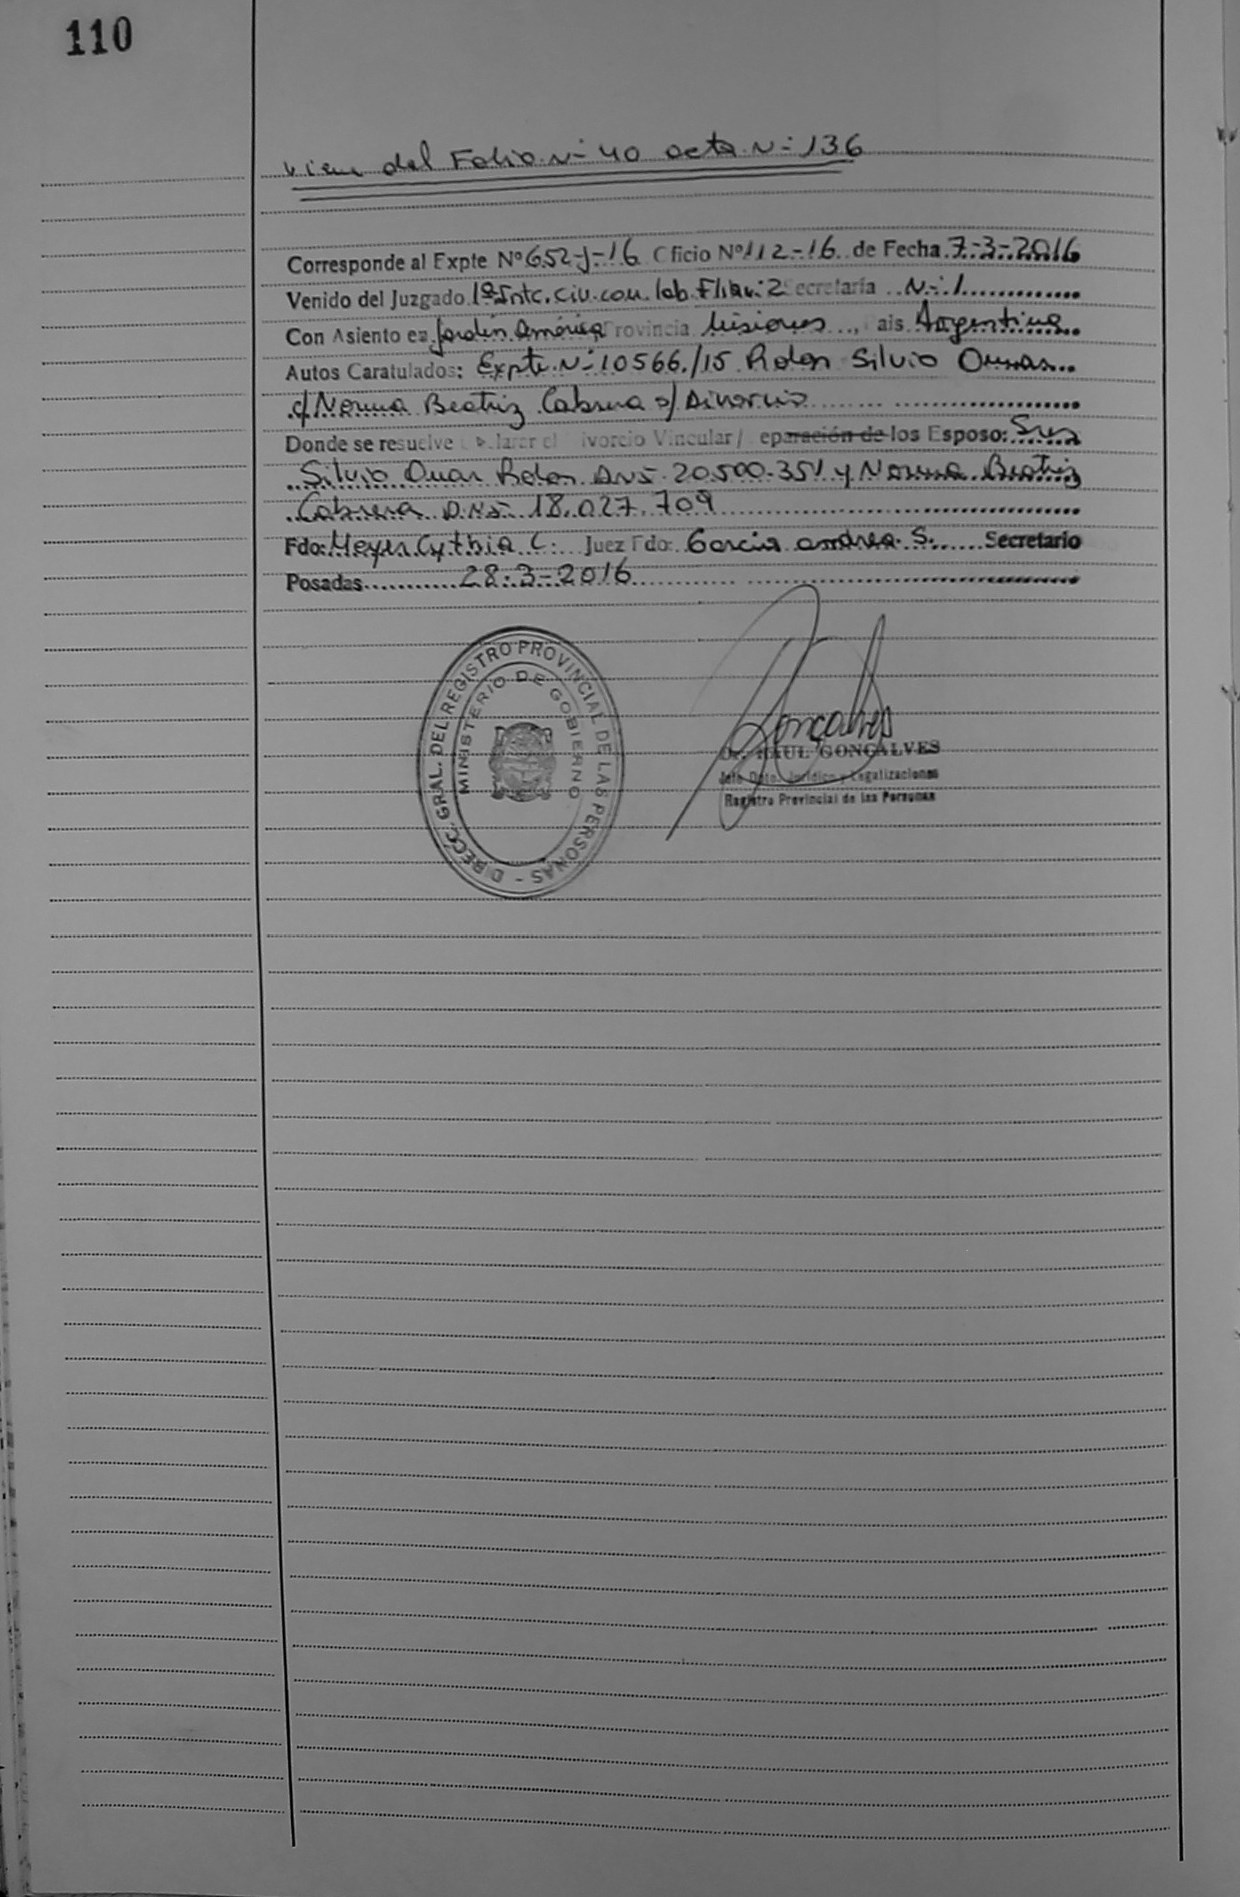 110
Viene del Folio N- 40 acta N- 136
Corresponde al Expte Nº 652-J-16 Oficio Nº 112-16 de Fecha 7-3-2016
Venido del Juzgado 1º Intc. Civ. com. lab. Flia N- 2 Secretaría N- 1
Con Asiento en Jardín América Provincia Misiones, Pais Argentina
Autos Caratulados: Expte N- 10566/15 Rolon Silvio Omar
c/ Norma Beatriz Cabrera s/ Divorcio
Donde se resuelve Declarar el Divorcio Vincular/ Separación de los Esposo: Sres
Silvio Omar Rolon DNI- 20.500.351 y Norma Beatriz
Cabrera DNI- 18.027.709
Fdo: Meyer Cythia C. Juez Fdo: Garcia andrea S. Secretario
Posadas 28-3-2016
DIRECC. GRAL. DEL REGISTRO PROVINCIAL DE LAS PERSONAS -
MINISTERIO DE GOBIERNO
Gonçalves
Dr. RAUL GONÇALVES
Jefe Dpto. Jurídico y Legalizaciones
Registro Provincial de las Personas